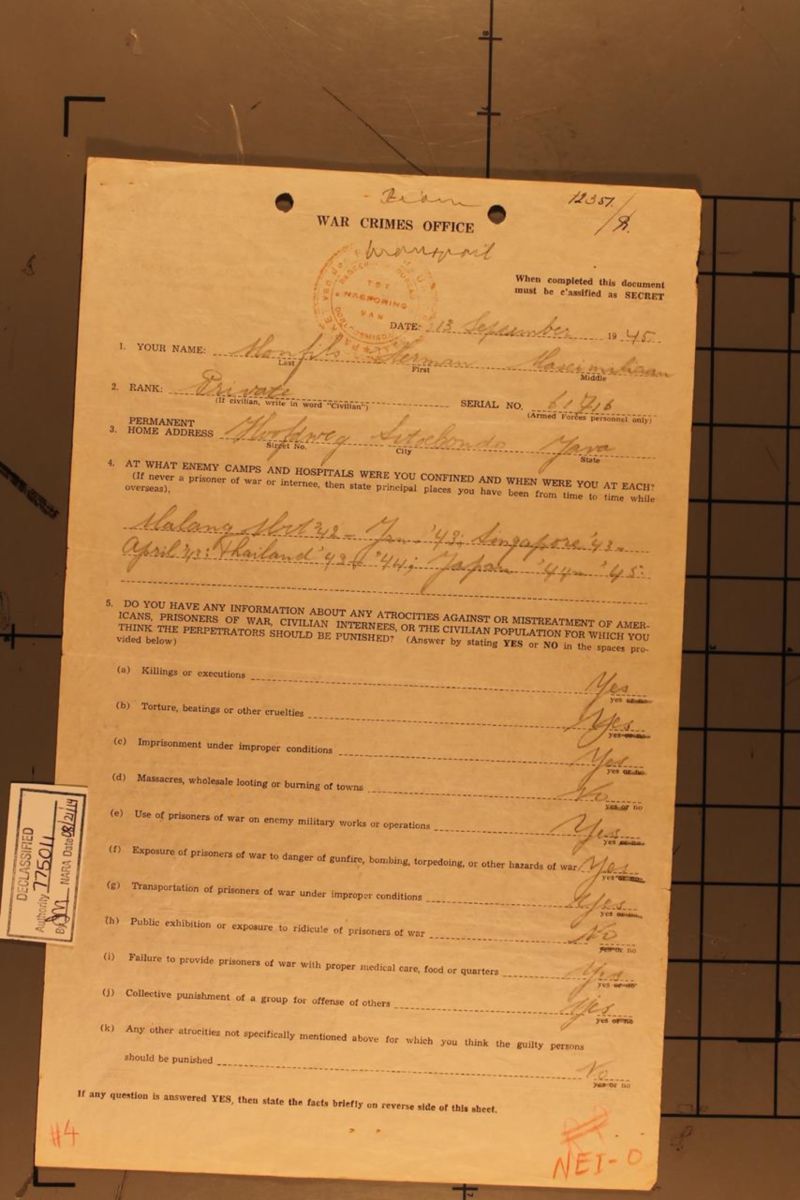 12351/R.
WAR CRIMES OFFICE
transport
When completed this document
must be c'assified as SECRET
DATE: 13 September 1945.
1. YOUR NAME: Monfils Herman
Last First Middle
2. RANK: Private SERIAL NO.
(If civilian, write in word "Civilian") (Armed Forces personnel only)
3. PERMANENT
HOME ADDRESS Hoofdweg Sitoebondo Java
Street No. City State
4. AT WHAT ENEMY CAMPS AND HOSPITALS WERE YOU CONFINED AND WHEN WERE YOU AT EACH?
(If never a prisoner of war or internee, then state principal places you have been from time to time while
overseas).
Malang Mrt '42 - Jan. '43; Singapore '43 -
April '43: Thailand '43 - '44; Japan '44 - '45.
5. DO YOU HAVE ANY INFORMATION ABOUT ANY ATROCITIES AGAINST OR MISTREATMENT OF AMER-
ICANS, PRISONERS OF WAR, CIVILIAN INTERNEES, OR THE CIVILIAN POPULATION FOR WHICH YOU
THINK THE PERPETRATORS SHOULD BE PUNISHED? (Answer by stating YES or NO in the spaces pro-
vided below)
(a) Killings or executions Yes
yes or no
(b) Torture, beatings or other cruelties Yes
yes or no
(c) Imprisonment under improper conditions Yes
yes or no
(d) Massacres, wholesale looting or burning of towns No
yes or no
(e) Use of prisoners of war on enemy military works or operations Yes
yes or no
(f) Exposure of prisoners of war to danger of gunfire, bombing, torpedoing, or other hazards of war Yes
yes or no
(g) Transportation of prisoners of war under improper conditions Yes
yes or no
(h) Public exhibition or exposure to ridicule of prisoners of war No
yes or no
(i) Failure to provide prisoners of war with proper medical care, food or quarters Yes
yes or no
(j) Collective punishment of a group for offense of others Yes
yes or no
(k) Any other atrocities not specifically mentioned above for which you think the guilty persons
should be punished No
yes or no
If any question is answered YES, then state the facts briefly on reverse side of this sheet.
#4
NEI-O
DECLASSIFIED
Authority 775011
By NARA Date 08/21/14